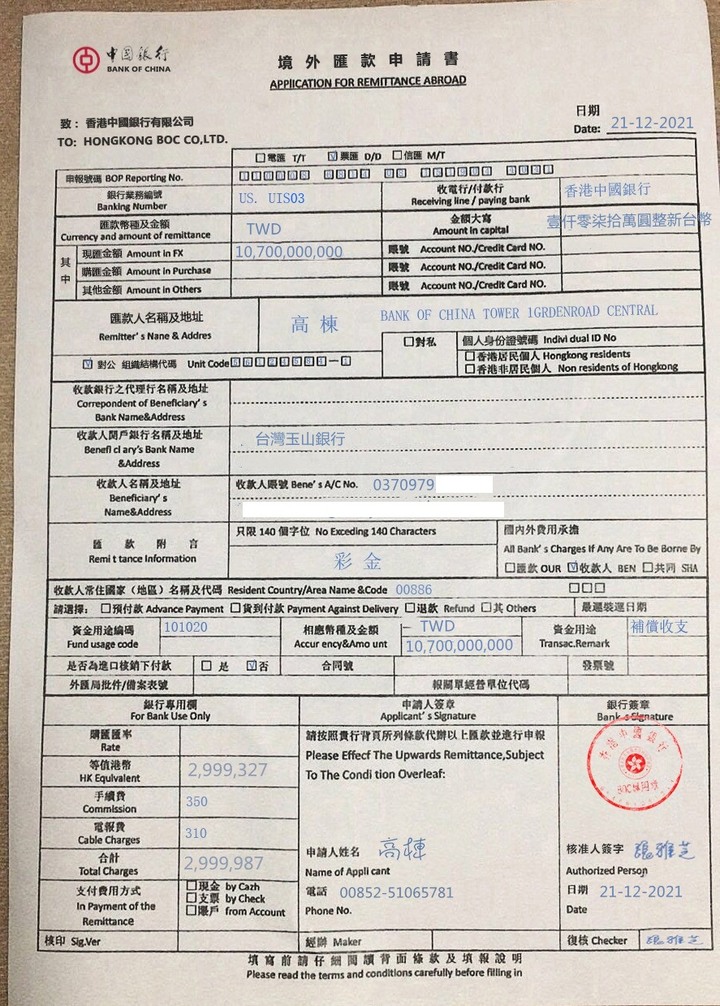 中國銀行
BANK OF CHINA
境外匯款申請書
APPLICATION FOR REMITTANCE ABROAD
致：香港中國銀行有限公司
TO: HONGKONG BOC CO,LTD.
日期
Date: 21-12-2021
電匯 T/T 票匯 D/D 信匯 M/T
申報號碼 BOP Reporting No.
銀行業務編號
Banking Number
US. UIS03
收電行/付款行
Receiving line / paying bank
香港中國銀行
匯款幣種及金額
Currency and amount of remittance
TWD
金額大寫
Amount in capital
壹仟零柒拾萬圓整新台幣
其中
現匯金額 Amount in FX
10,700,000,000
賬號 Account NO./Credit Card NO.
購匯金額 Amount in Purchase
賬號 Account NO./Credit Card NO.
其他金額 Amount in Others
賬號 Account NO./Credit Card NO.
匯款人名稱及地址
Remitter's Nane & Addres
高棟
BANK OF CHINA TOWER 1GRDENROAD CENTRAL
對公 組織結構代碼 Unit Code
對私
個人身份證號碼 Indivi dual ID No
香港居民個人 Hongkong residents
香港非居民個人 Non residents of Hongkong
收款銀行之代理行名稱及地址
Correpondent of Beneficiary's
Bank Name&Address
收款人開戶銀行名稱及地址
Benefi cl ary's Bank Name
&Address
台灣玉山銀行
收款人名稱及地址
Beneficiary's
Name&Address
收款人賬號 Bene's A/C No. 0370979
匯款附言
Remi t tance Information
只限 140 個字位 No Exceding 140 Characters
彩金
國內外費用承擔
All Bank's Charges If Any Are To Be Borne By
匯款 OUR 收款人 BEN 共同 SHA
收款人常住國家（地區）名稱及代碼 Resident Country/Area Name &Code 00886
請選擇： 預付款 Advance Payment 貨到付款 Payment Against Delivery 退款 Refund 其 Others
最遲裝運日期
資金用途編碼
Fund usage code
101020
相應幣種及金額
Accur ency&Amo unt
TWD
10,700,000,000
資金用途
Transac.Remark
補償收支
是否為進口核銷下付款 是 否
合同號
發票號
外匯局批件/備案表號
報關單經營單位代碼
銀行專用欄
For Bank Use Only
申請人簽章
Applicant's Signature
銀行簽章
Bank s Signature
購匯匯率
Rate
等值港幣
HK Equivalent
2,999,327
手續費
Commission
350
電報費
Cable Charges
310
合計
Total Charges
2,999,987
支付費用方式
In Payment of the
Remittance
現金 by Cazh
支票 by Check
賬戶 from Account
請按照貴行背頁所列條款代辦以上匯款並進行申報
Please Effecf The Upwards Remittance,Subject
To The Condi tion Overleaf:
申請人姓名 高棟
Name of Appli cant
電話 00852-51065781
Phone No.
香港中國銀行
核准人簽字 張雅芝
Authorized Person
日期 21-12-2021
Date
核印 Sig.Ver
經辦 Maker
復核 Checker 張雅芝
填寫前請仔細閱讀背面條款及填報說明
Please read the terms and conditions carefully before filling in